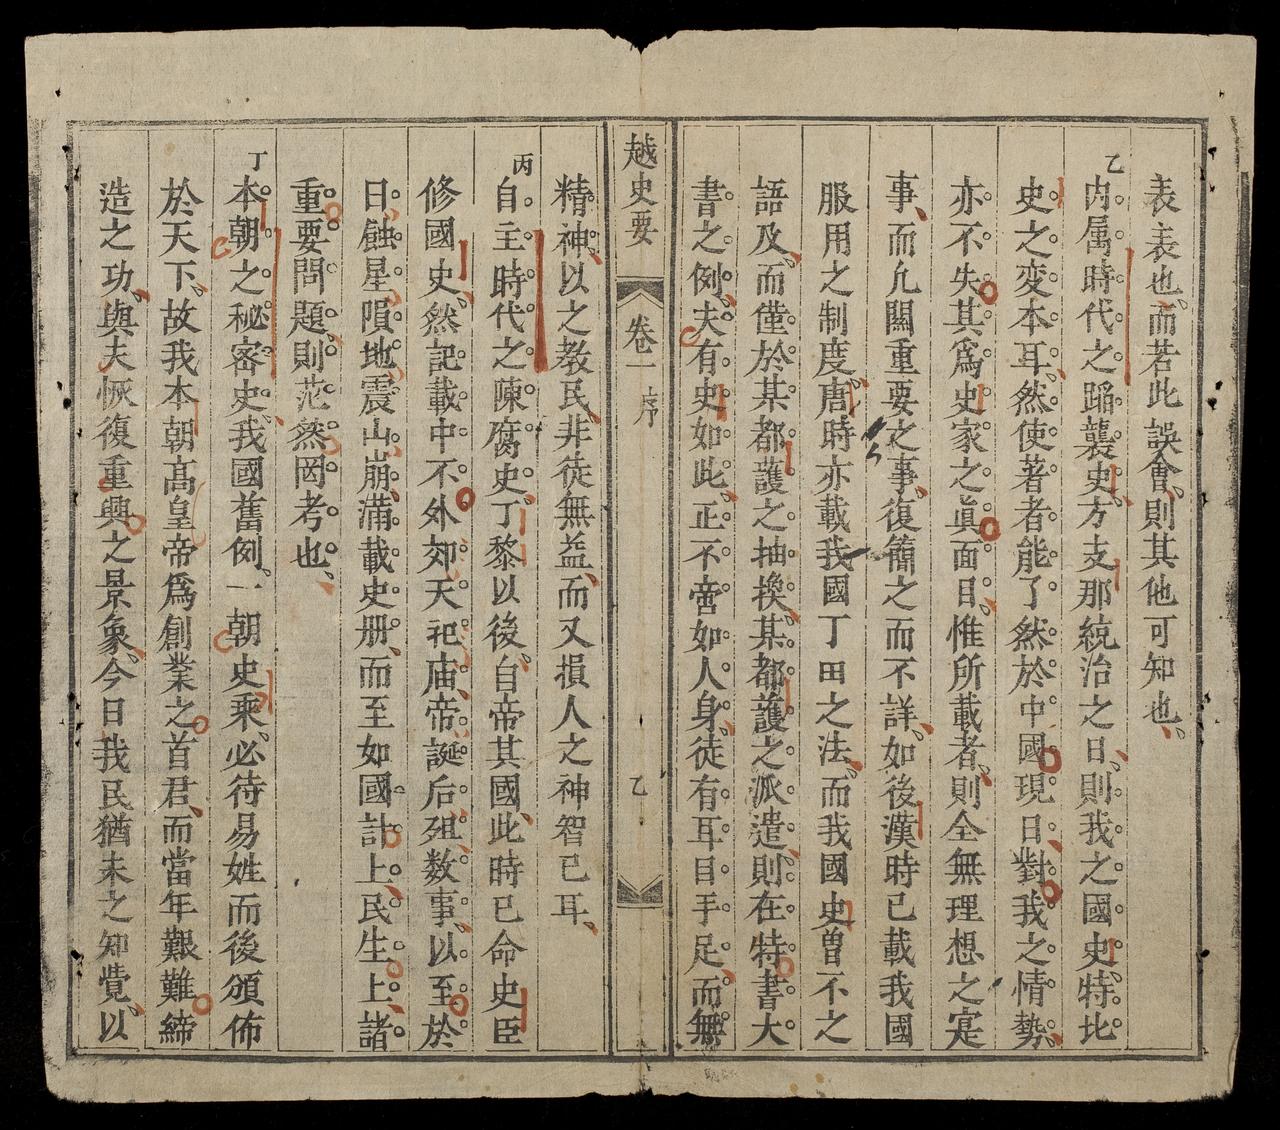 表表也而若此誤會則其他可知也
乙
内属時代之蹈襲史方支那統治之日則我之國史特比
史之変本耳然使著者能了然於中國現日對我之情勢
亦不失其爲史家之眞面目惟所載者則全無理想之寔
事而凢關重要之事復簡之而不詳如後漢時已載我國
服用之制度唐時亦載我國丁田之法而我國史曽不之
語及而僅於某都護之抽換某都護之派遣則在特書大
書之例夫有史如此正不啻如人身徒有耳目手足而無
越史要
卷一
序
乙
精神以之教民非徒無益而又損人之神智已耳
丙
自主時代之陳腐史丁黎以後自帝其國此時已命史臣
修國史然記載中不外郊天祀庙帝誕后殂数事以至於
日蝕星隕地震山崩滿載史册而至如國計上民生上諸
重要問題則茫然罔考也
丁
本朝之秘密史我國舊例一朝史乘必待易姓而後頒佈
於天下故我本朝高皇帝爲創業之首君而當年艱難締
造之功與夫恢復重興之景象今日我民猶未之知覺以